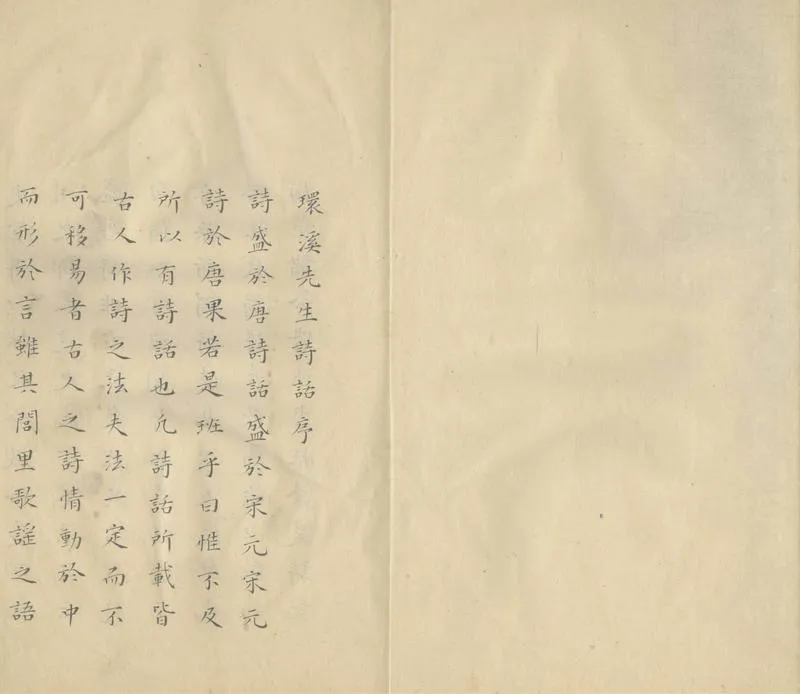 環溪先生詩話序
詩盛於唐詩話盛於宋元宋元
詩於唐果若是班乎曰惟不及
所以有詩話也凡詩話所載皆
古人作詩之法夫法一定而不
可移易者古人之詩情動於中
而形於言雖其閭里歌謠之語